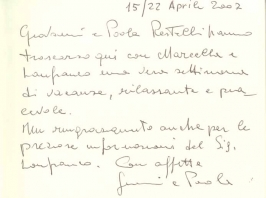 15/22 Aprile 2002
Giovanni e Paola Restelli hanno
trascorso qui con Marcella e
Lanfranco una vera settimana
di vacanza, rilassante e pia
cevole.
Un ringraziamento anche per le
preziose informazioni del Sig.
Lanfranco. Con affetto
e Paola